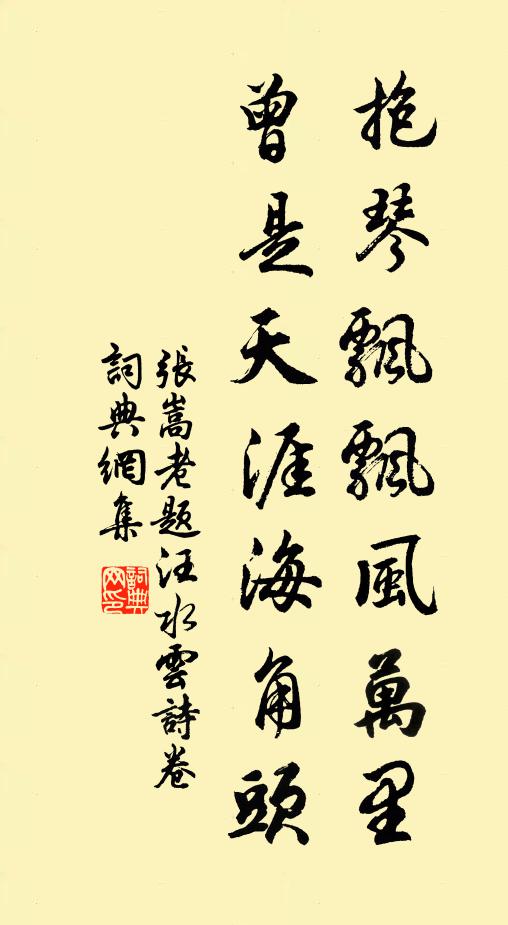 抱琴飄飄風萬里
曾是天涯海角頭
張嵩老題汪水雲詩卷
詞典網集
詞典
网印